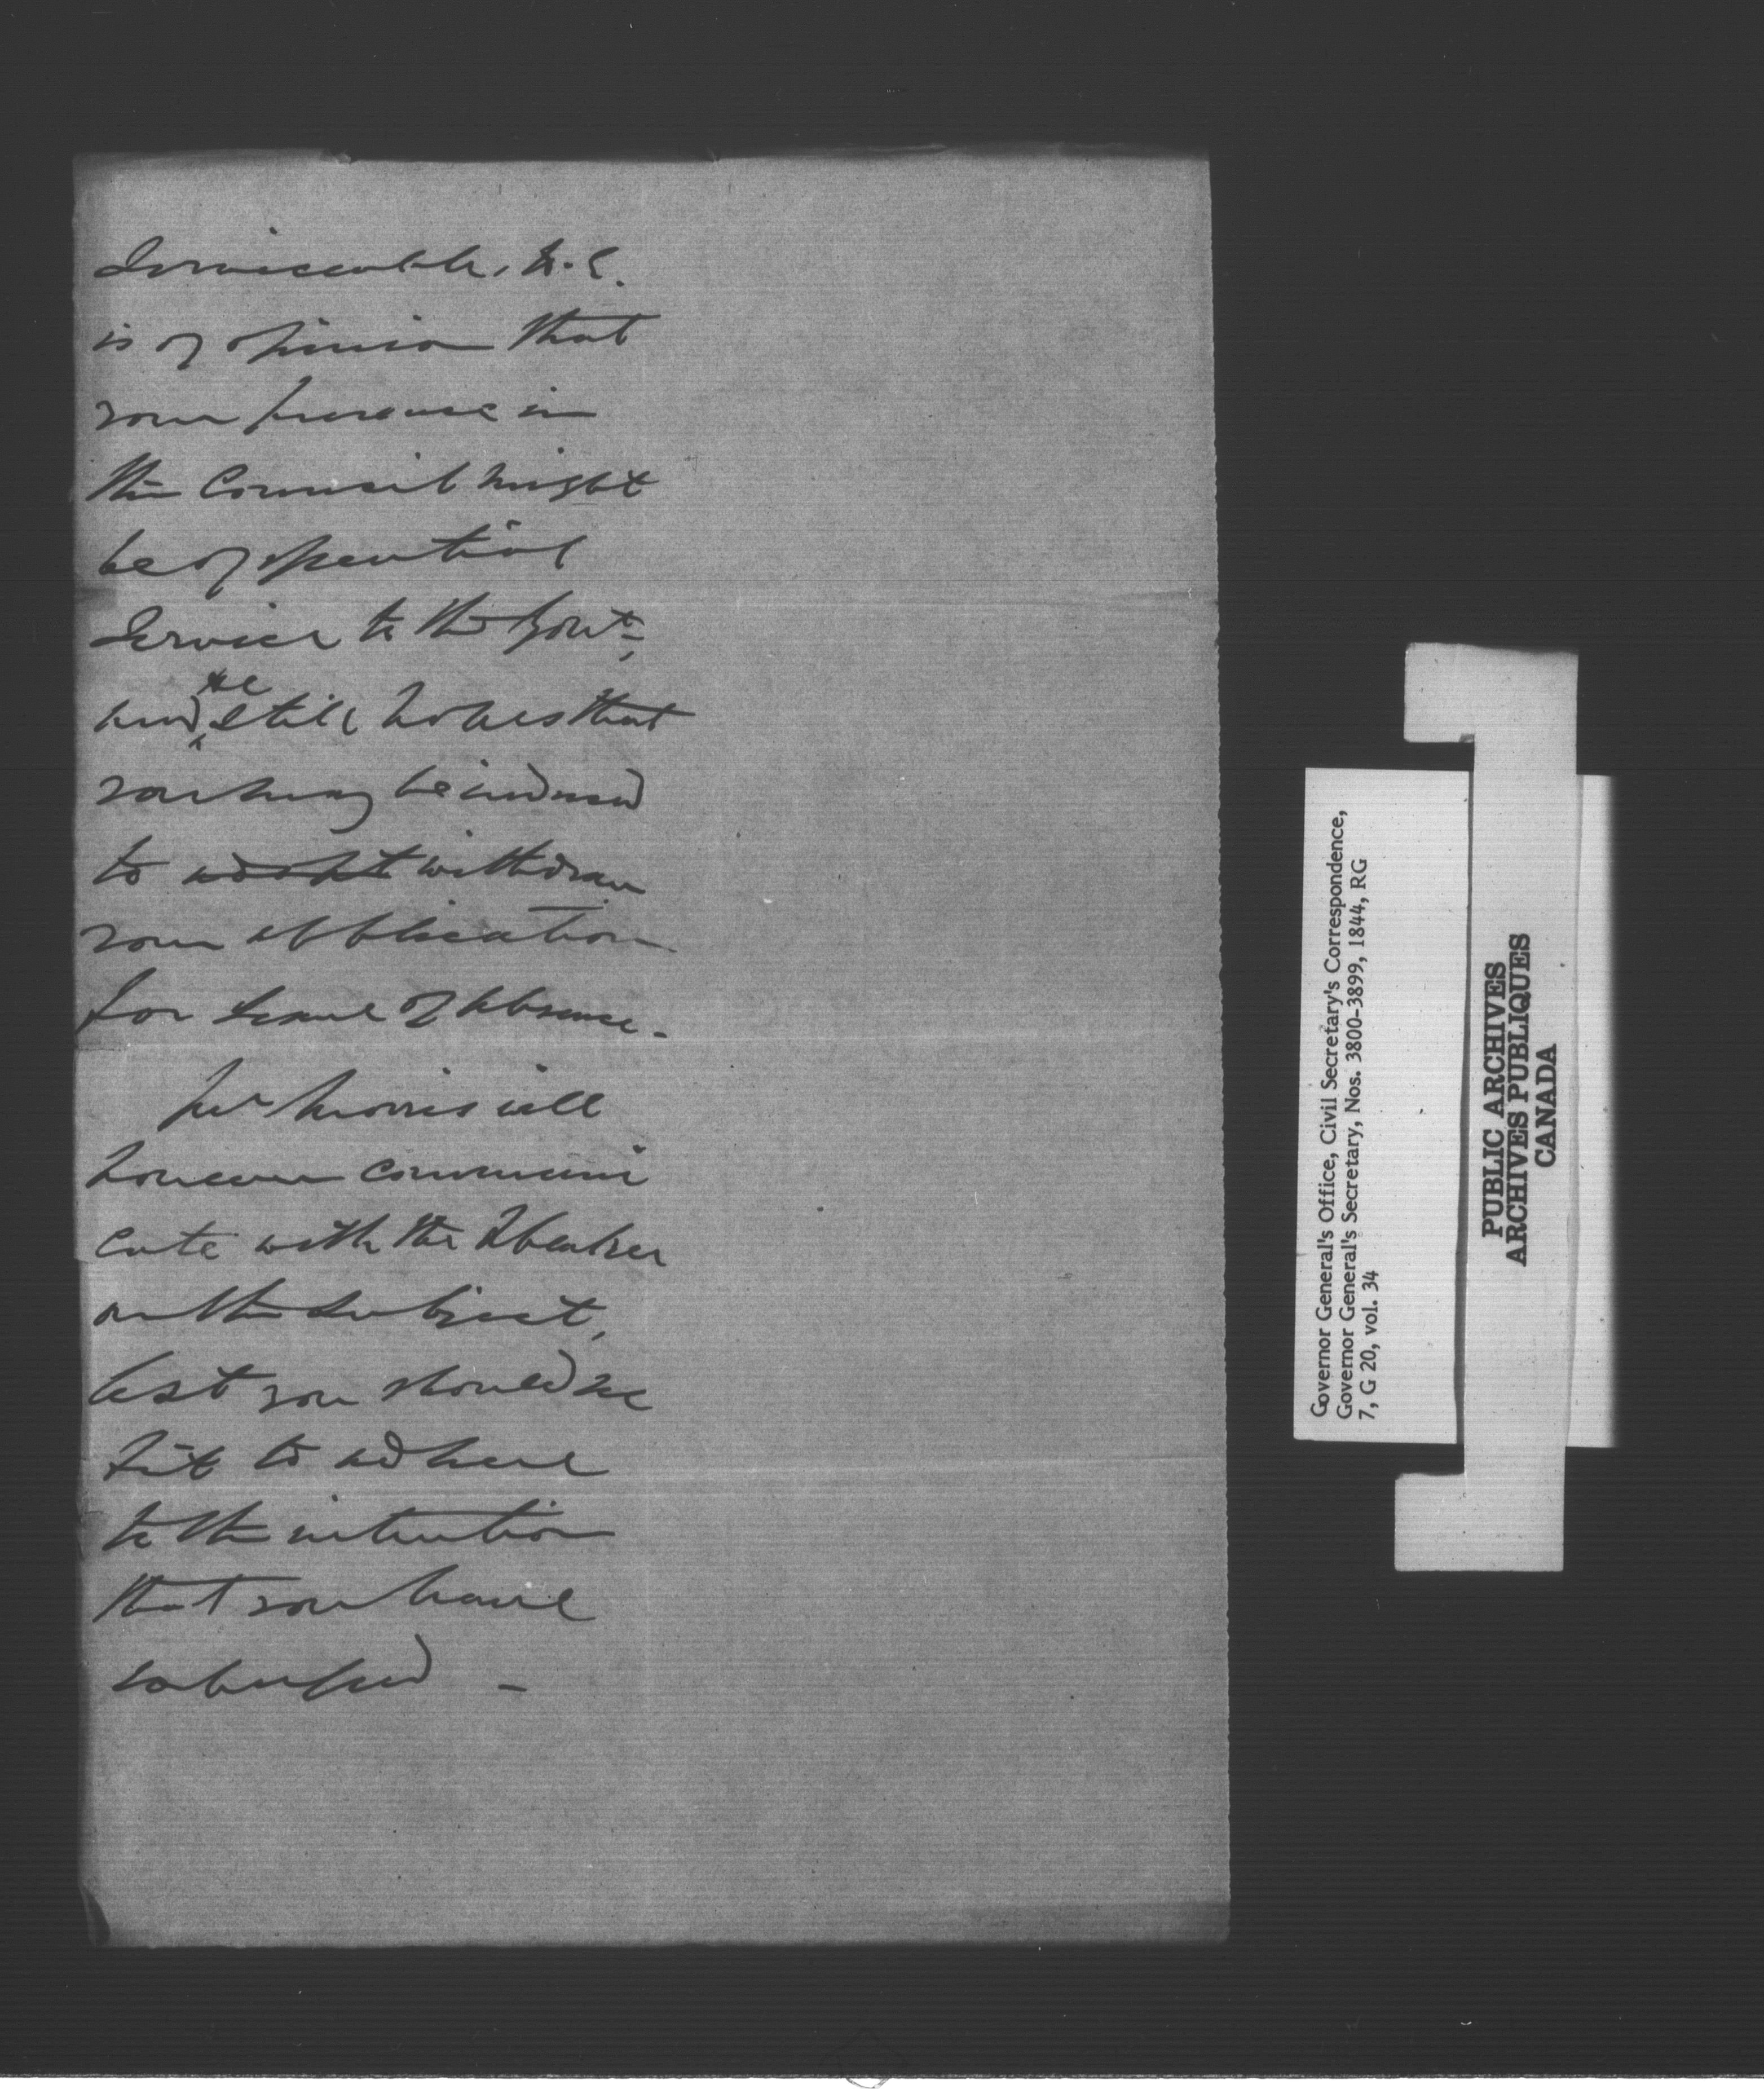 Serviceable, H.E.
is of opinion that
your presence in
the Council might
be of essential
Service to the Govt,
and he still hopes that
you may be induced
to adopt withdraw
your application
for Leave of Absence.
Mr Morris will
however communi
cate with the Speaker
on the Subject,
lest you should see
fit to adhere
to the intention
that you have
expressed –
Governor General's Office, Civil Secretary's Correspondence,
Governor General's Secretary, Nos. 3800-3899, 1844, RG
7, G 20, vol. 34
PUBLIC ARCHIVES
ARCHIVES PUBLIQUES
CANADA